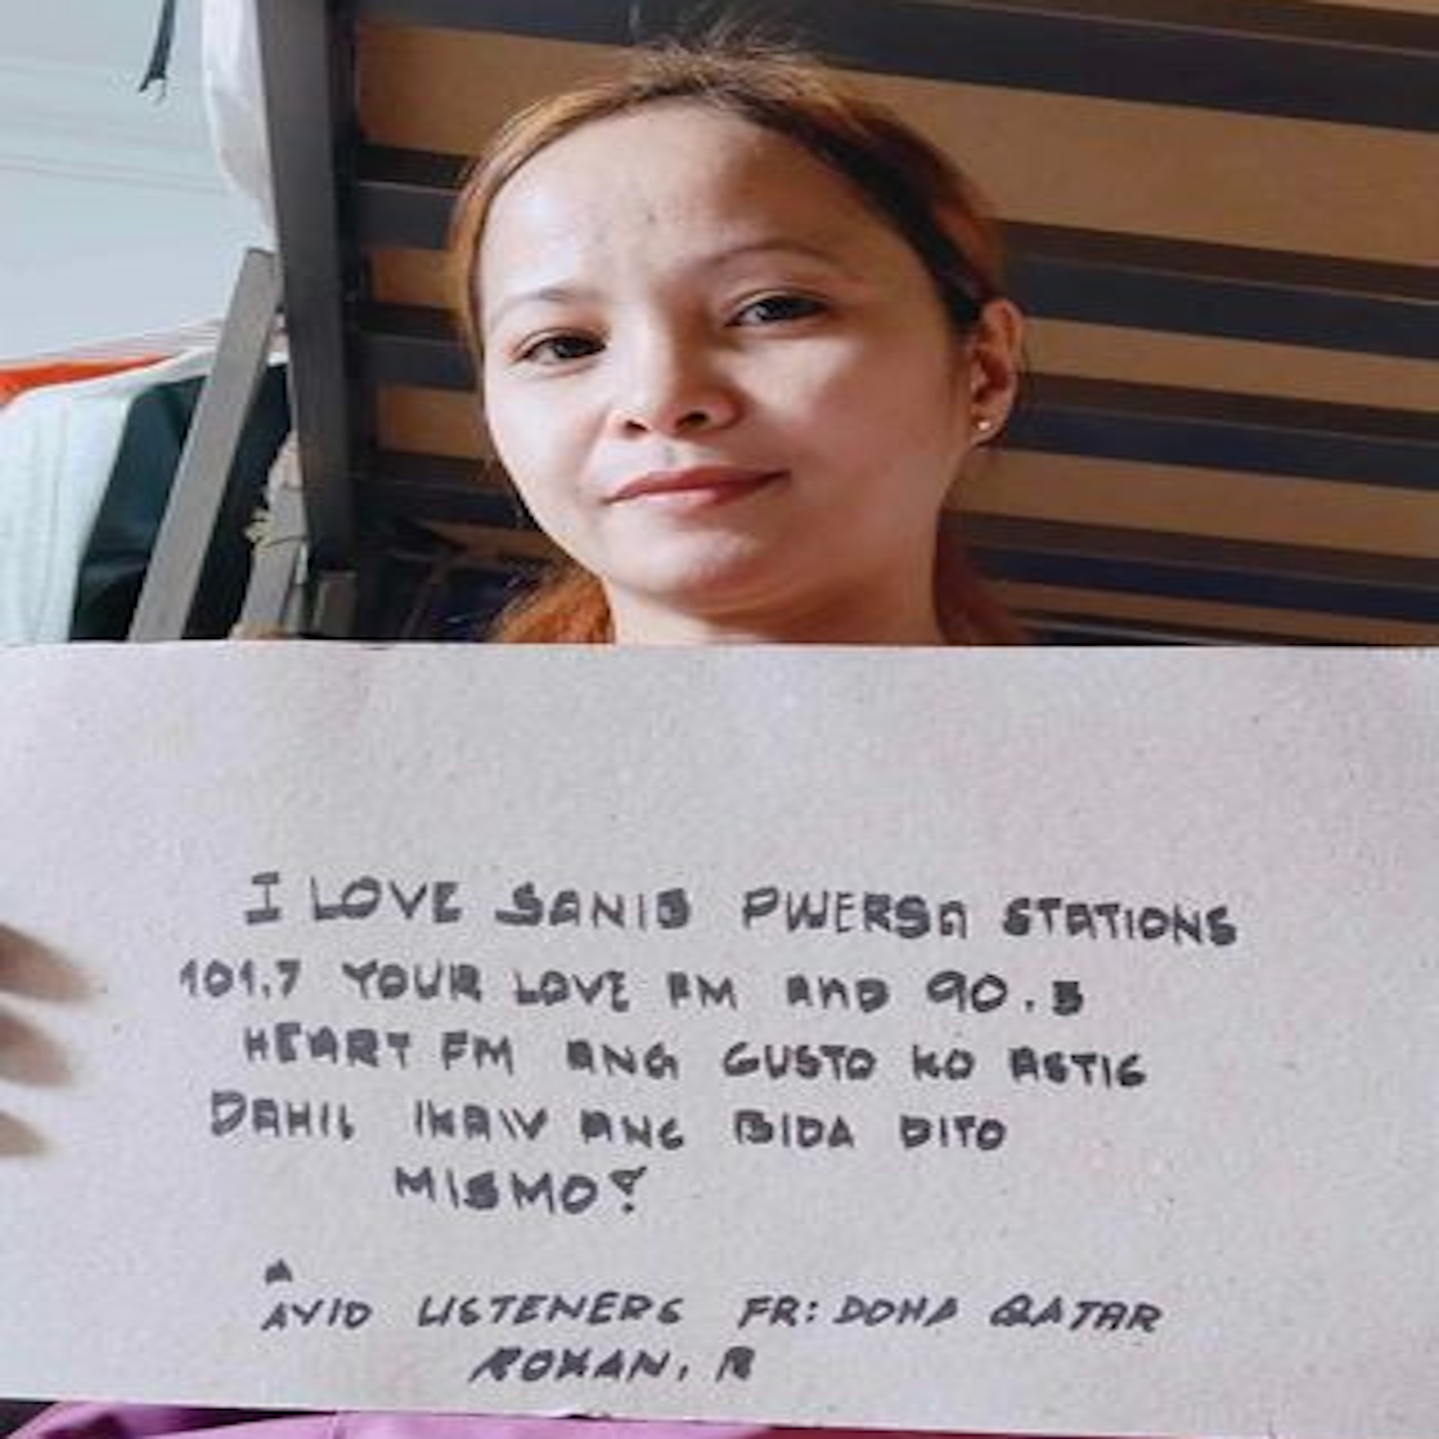 I LOVE SANIB PWERSA STATIONS
101.7 YOUR LOVE FM AND 90.5
HEART FM ANG GUSTO KO ASTIG
DAHIL IKAW ANG BIDA DITO
MISMO!
AVID LISTENERS FR: DOHA QATAR
ROXAN, R